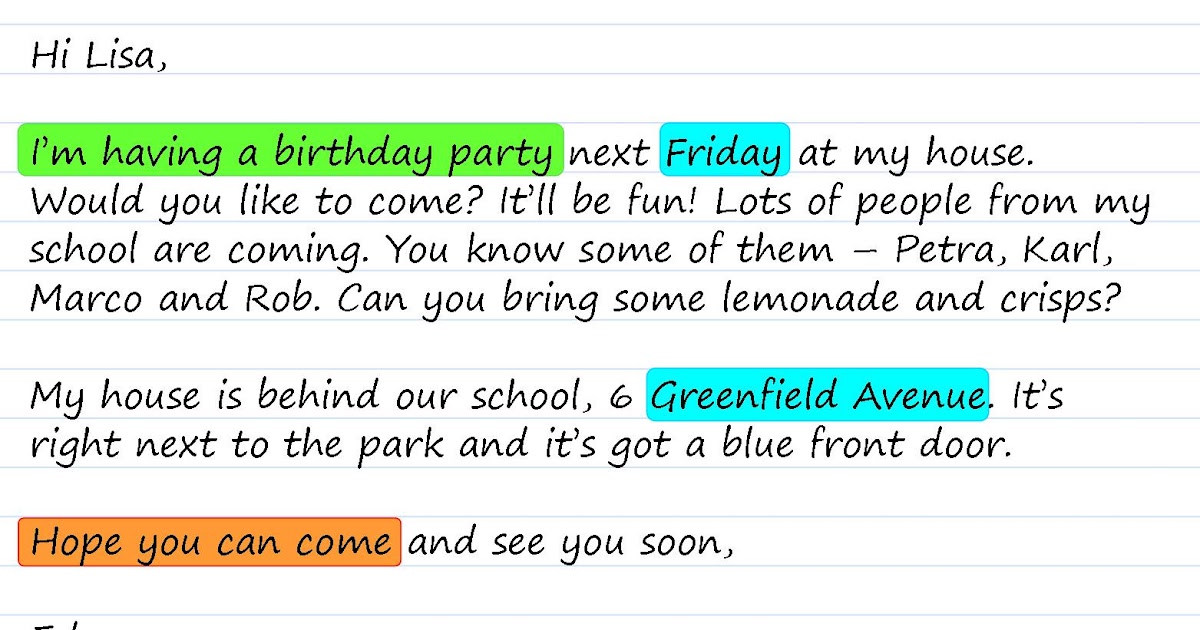 Hi Lisa,
I'm having a birthday party next Friday at my house.
Would you like to come? It'll be fun! Lots of people from my
school are coming. You know some of them – Petra, Karl,
Marco and Rob. Can you bring some lemonade and crisps?
My house is behind our school, 6 Greenfield Avenue. It's
right next to the park and it's got a blue front door.
Hope you can come and see you soon,